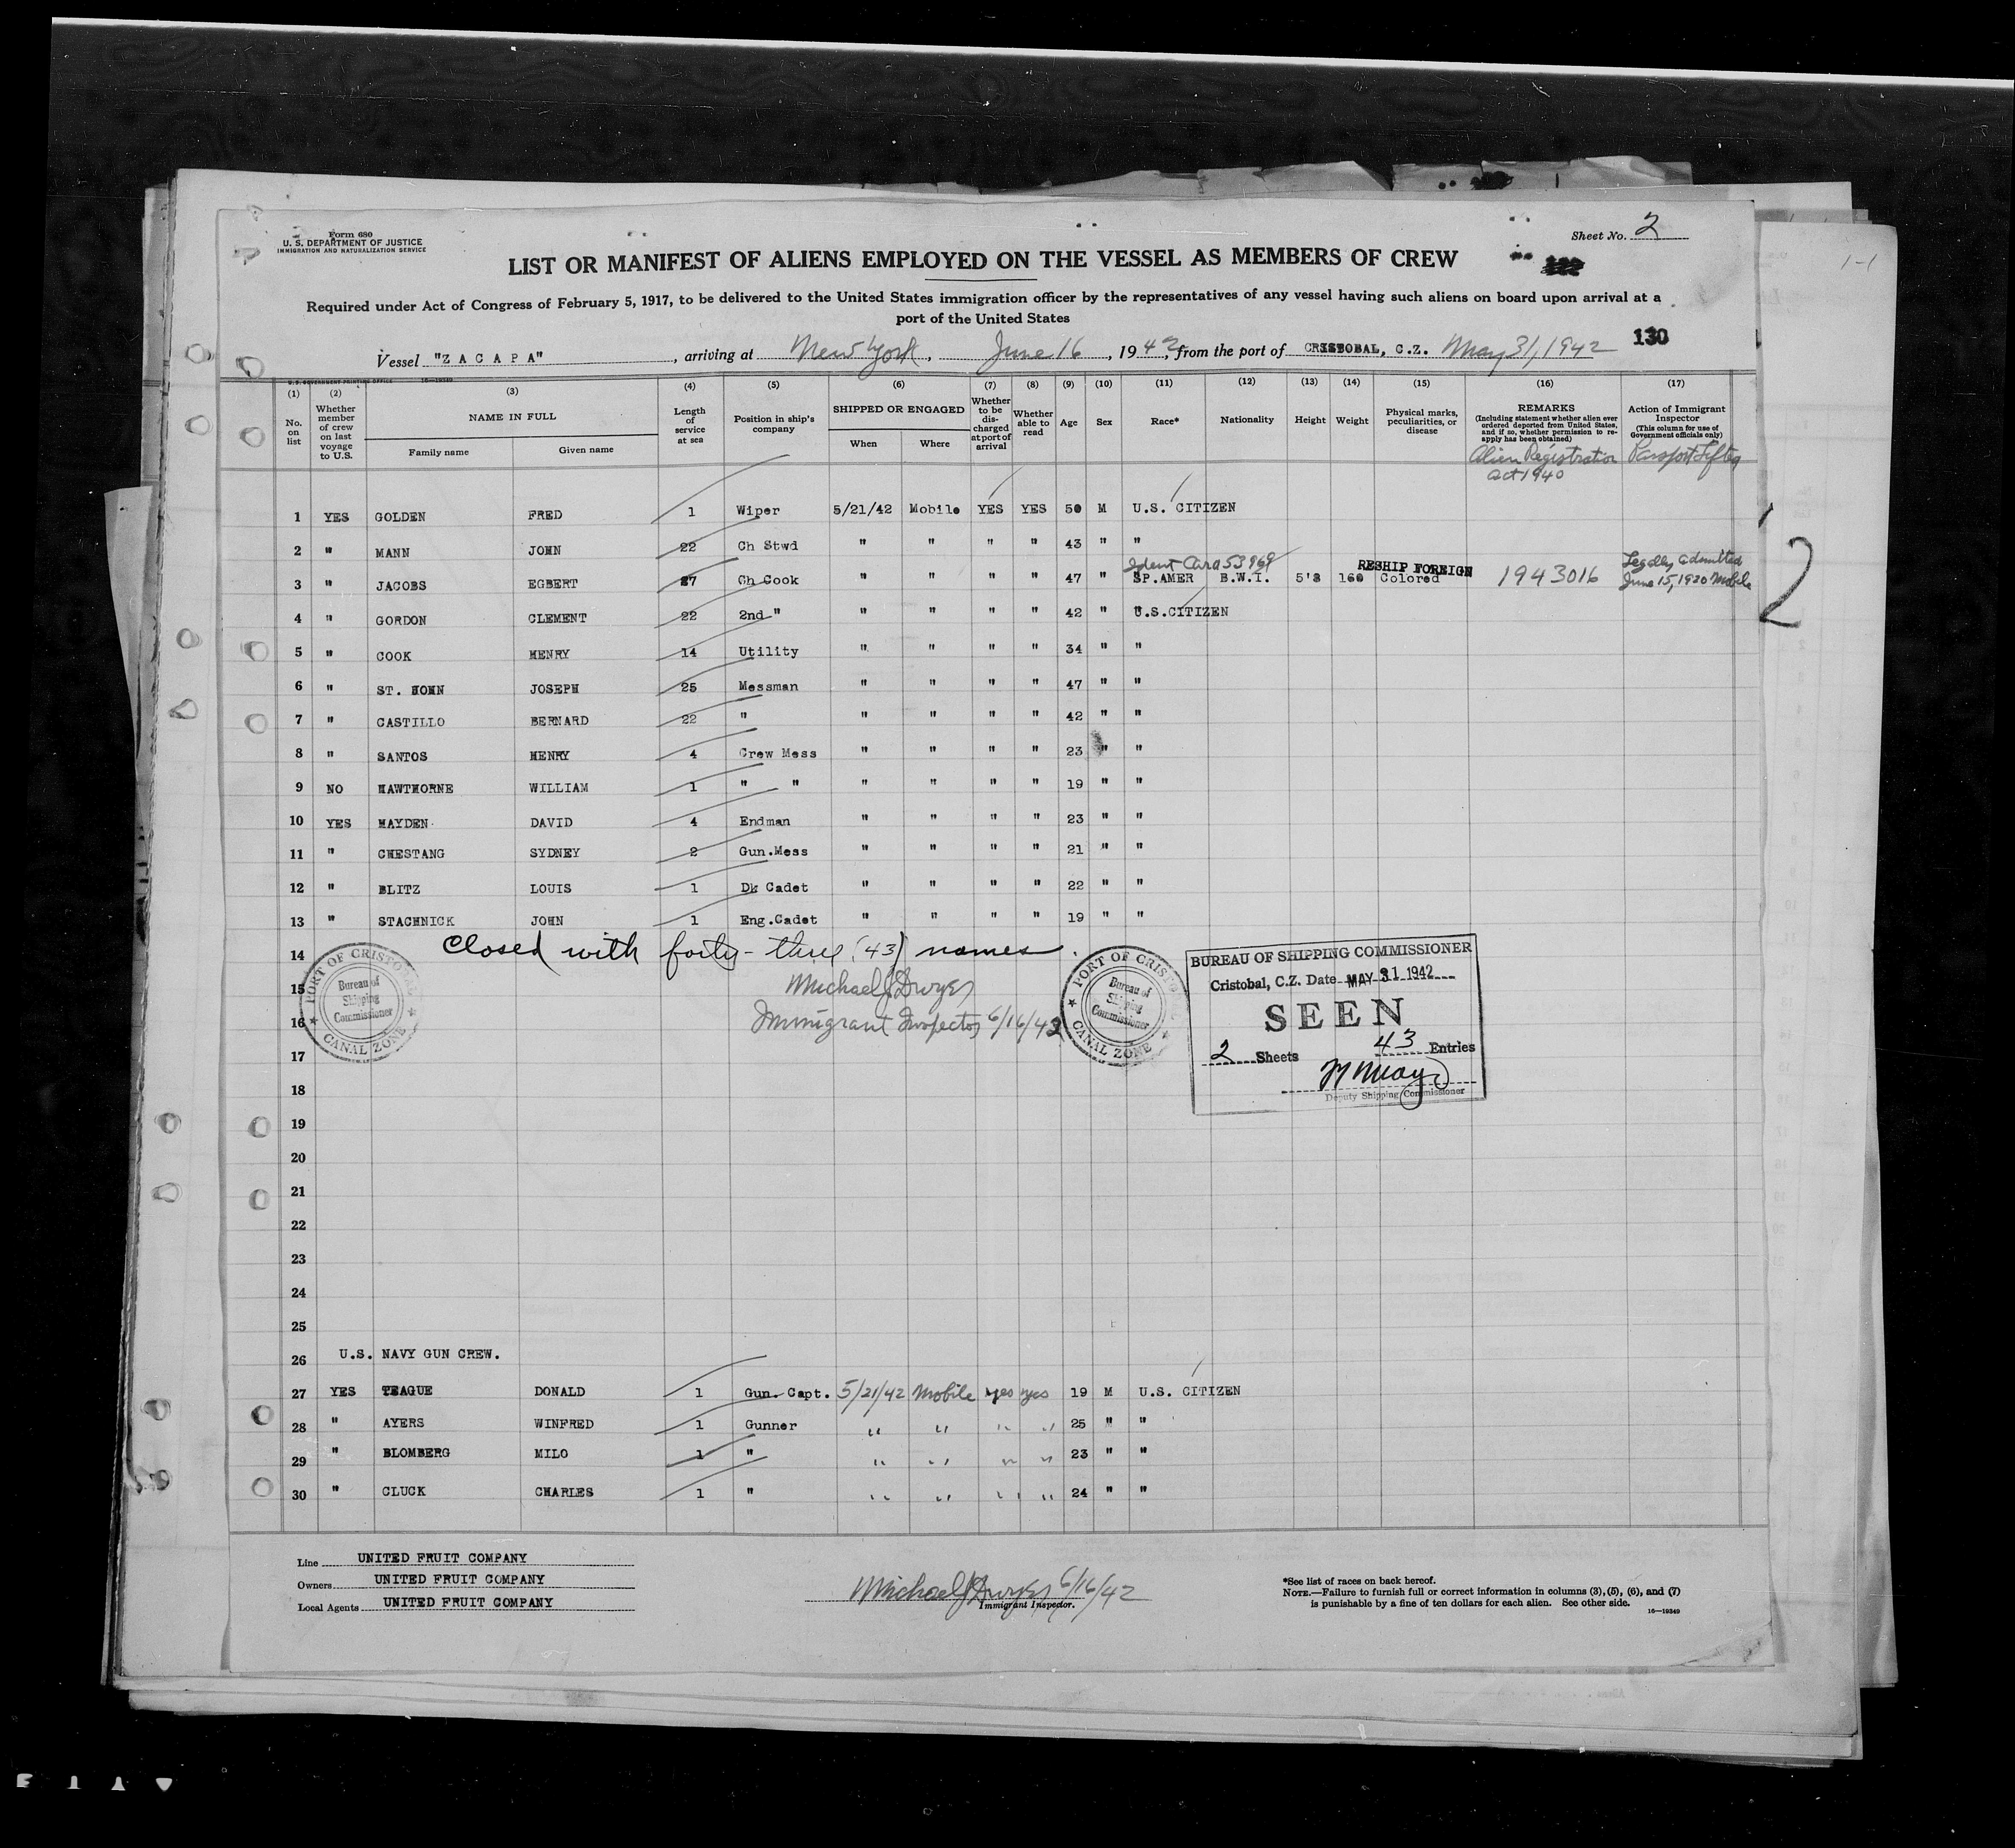 Form 680
U. S. DEPARTMENT OF JUSTICE
IMMIGRATION AND NATURALIZATION SERVICE
Sheet No. 2
LIST OR MANIFEST OF ALIENS EMPLOYED ON THE VESSEL AS MEMBERS OF CREW
Required under Act of Congress of February 5, 1917, to be delivered to the United States immigration officer by the representatives of any vessel having such aliens on board upon arrival at a
port of the United States
130
Vessel "ZACAPA", arriving at New York, June 16, 1942, from the port of CRISTOBAL, C.Z. May 31, 1942
U.S. GOVERNMENT PRINTING OFFICE 16—19349
(1) (2) (3) (4) (5) (6) (7) (8) (9) (10) (11) (12) (13) (14) (15) (16) (17)
No. on list
Whether member of crew on last voyage to U.S.
NAME IN FULL
Family name Given name
Length of service at sea
Position in ship's company
SHIPPED OR ENGAGED
When Where
Whether to be discharged at port of arrival
Whether able to read
Age Sex Race* Nationality Height Weight
Physical marks, peculiarities, or disease
REMARKS
(Including statement whether alien ever ordered deported from United States, and if so, whether permission to reapply has been obtained)
Action of Immigrant Inspector
(This column for use of Government officials only)
Alien Registration
Act 1940
1 YES GOLDEN FRED 1 Wiper 5/21/42 Mobile YES YES 50 M U.S. CITIZEN
2 " MANN JOHN 22 Ch Stwd " " " " 43 " "
Ident Card 53969
RESHIP FOREIGN
Legally admitted
3 " JACOBS EGBERT 27 Ch Cook " " " " 47 " SP.AMER B.W.I. 5'8 160 Colored 1943016 June 15, 1920 Mobile
4 " GORDON CLEMENT 22 2nd " " " " " 42 " U.S.CITIZEN
5 " COOK HENRY 14 Utility " " " " 34 " "
6 " ST. JOHN JOSEPH 25 Messman " " " " 47 " "
7 " CASTILLO BERNARD 22 " " " " " 42 " "
8 " SANTOS HENRY 4 Crew Mess " " " " 23 " "
9 NO HAWTHORNE WILLIAM 1 " " " " " " 19 " "
10 YES HAYDEN DAVID 4 Endman " " " " 23 " "
11 " CHESTANG SYDNEY 2 Gun.Mess " " " " 21 " "
12 " BLITZ LOUIS 1 Dk Cadet " " " " 22 " "
13 " STACHNICK JOHN 1 Eng.Cadet " " " " 19 " "
14 Closed with forty-three (43) names.
15 Michael J Dwyer
16 Immigrant Inspector 6/16/42
17
18
19
20
21
22
23
24
25
PORT OF CRISTOBAL
Bureau of
Shipping
Commissioner
CANAL ZONE
PORT OF CRISTOBAL
Bureau of
Shipping
Commissioner
CANAL ZONE
BUREAU OF SHIPPING COMMISSIONER
Cristobal, C.Z. Date MAY 31 1942
SEEN
2 Sheets 43 Entries
Deputy Shipping Commissioner
2
26 U.S. NAVY GUN CREW.
27 YES TEAGUE DONALD 1 Gun. Capt. 5/21/42 Mobile yes yes 19 M U.S. CITIZEN
28 " AYERS WINFRED 1 Gunner " " " " 25 " "
29 " BLOMBERG MILO 1 " " " " " 23 " "
30 " CLUCK CHARLES 1 " " " " " 24 " "
Line UNITED FRUIT COMPANY
Owners UNITED FRUIT COMPANY
Local Agents UNITED FRUIT COMPANY
Michael J Dwyer 6/16/42
Immigrant Inspector.
*See list of races on back hereof.
NOTE.—Failure to furnish full or correct information in columns (3), (5), (6), and (7)
is punishable by a fine of ten dollars for each alien. See other side.
16—19349